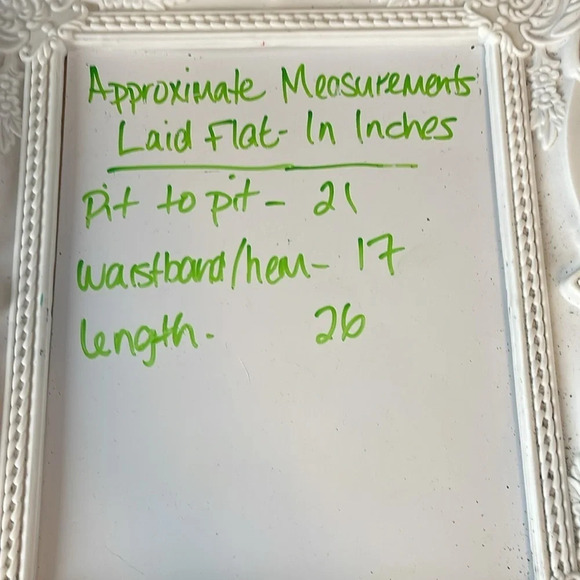 Approximate Measurements
Laid Flat- In Inches
pit to pit - 21
waistband/hem- 17
length- 26